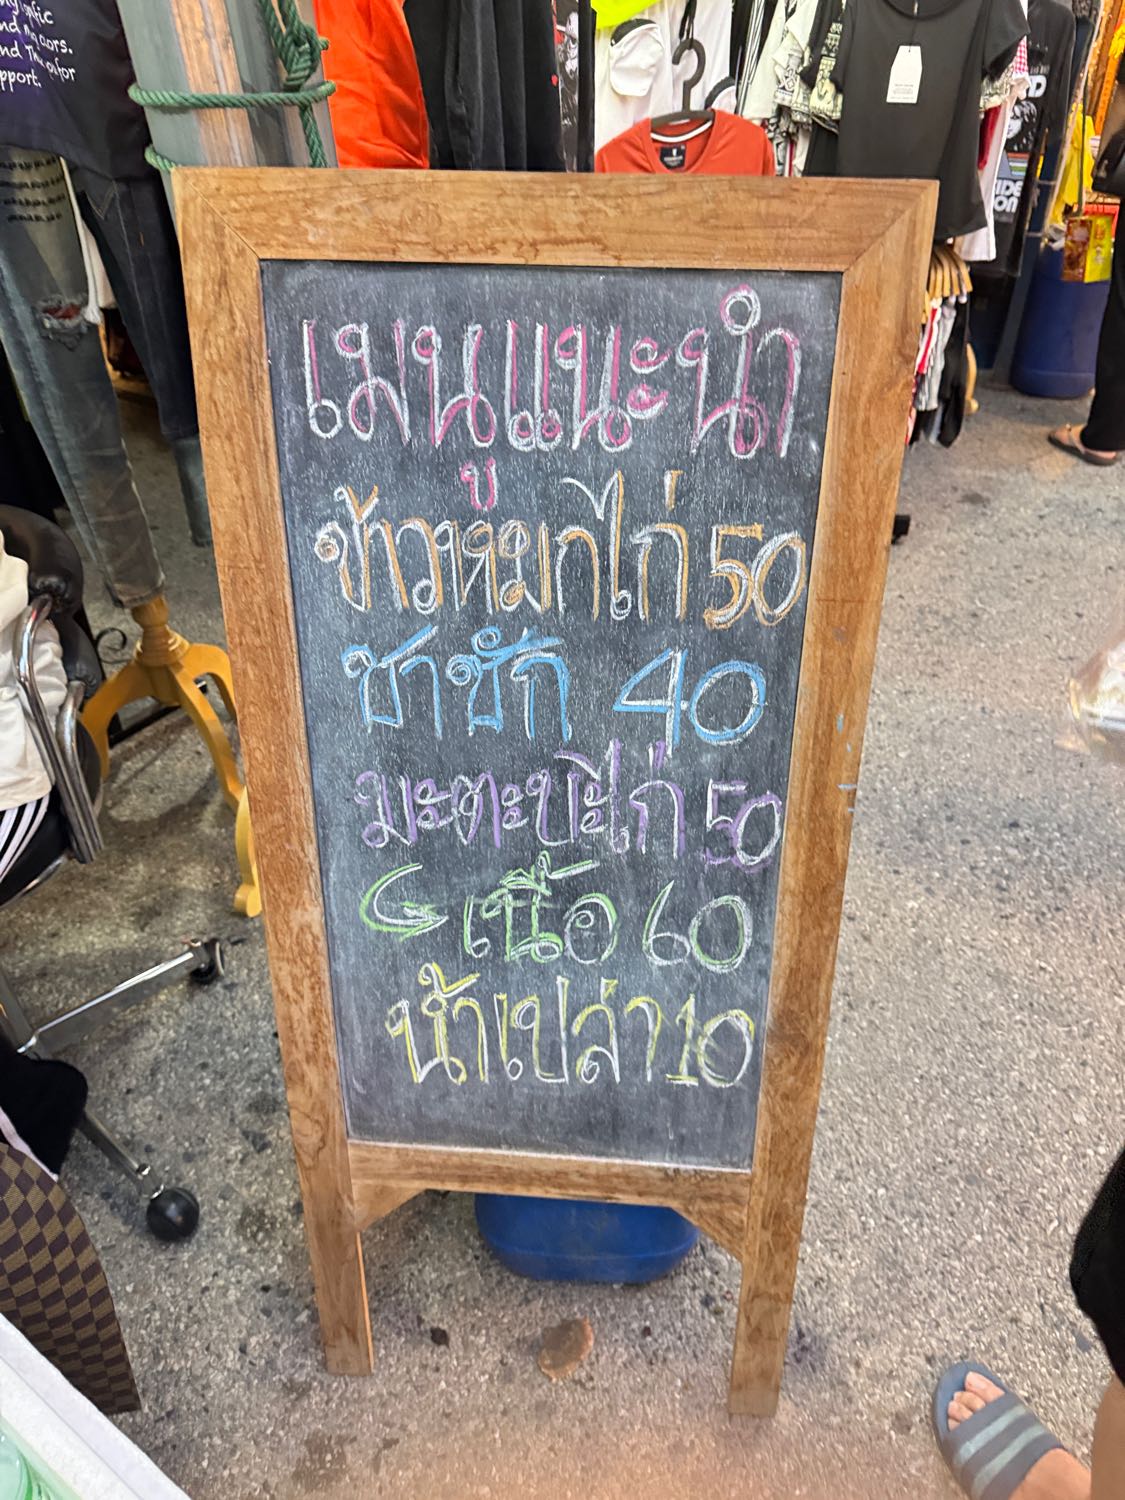 เมนูแนะนำ
ข้าวหมกไก่ 50
ชาชัก 40
มะตะบะไก่ 50
เนื้อ 60
น้ำเปล่า 10